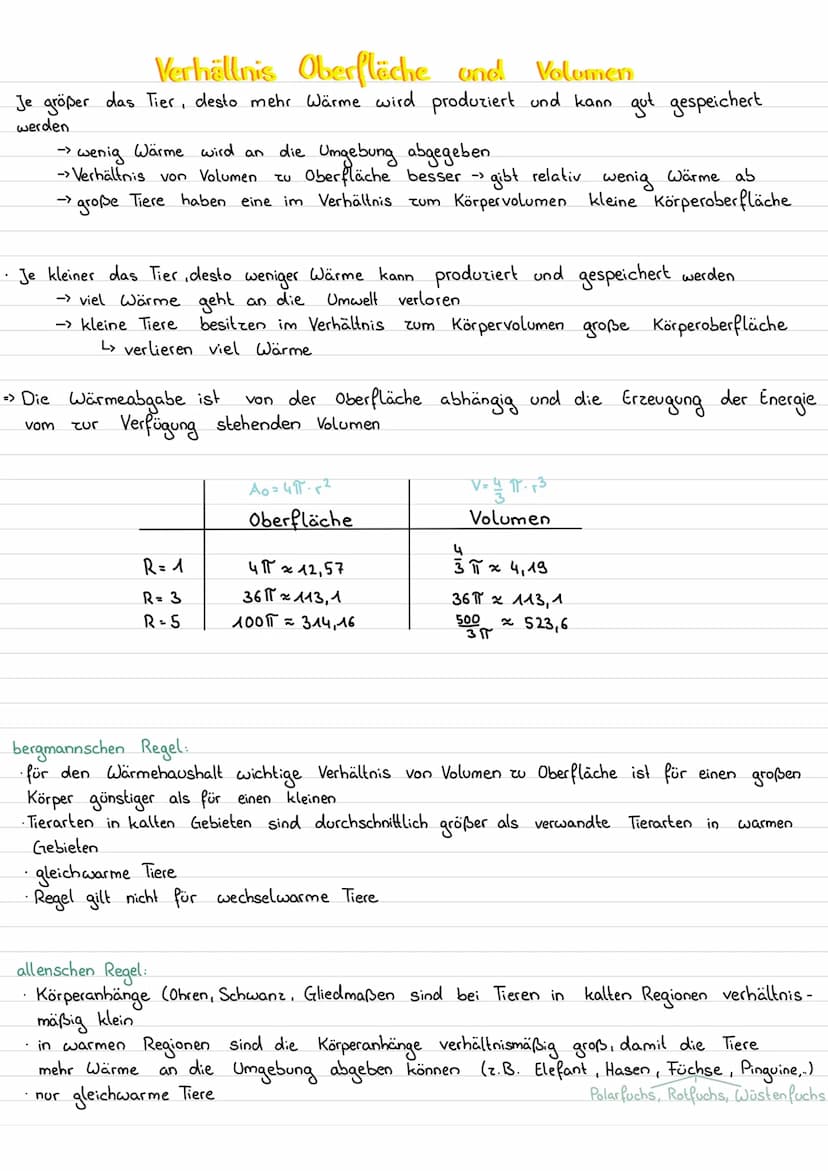 Verhältnis Oberfläche und Volumen
Je größer das Tier, desto mehr Wärme wird produziert und kann gut gespeichert
werden
→ wenig Wärme wird an die Umgebung abgegeben
→ Verhältnis von Volumen zu Oberfläche besser → gibt relativ wenig Wärme ab
→ große Tiere haben eine im Verhältnis zum Körpervolumen kleine Körperoberfläche
· Je kleiner das Tier, desto weniger Wärme kann produziert und gespeichert werden
→ viel Wärme geht an die Umwelt verloren
→ kleine Tiere besitzen im Verhältnis zum Körpervolumen große Körperoberfläche
↳ verlieren viel Wärme
=> Die Wärmeabgabe ist von der Oberfläche abhängig und die Erzeugung der Energie
vom zur Verfügung stehenden Volumen
A₀ = 4π · r² V = 4/3 π · r³
Oberfläche Volumen
R = 1 4π ≈ 12,57 4/3 π ≈ 4,19
R = 3 36π ≈ 113,1 36π ≈ 113,1
R = 5 100π ≈ 314,16 500/3π ≈ 523,6
bergmannschen Regel:
· für den Wärmehaushalt wichtige Verhältnis von Volumen zu Oberfläche ist für einen großen
Körper günstiger als für einen kleinen
· Tierarten in kalten Gebieten sind durchschnittlich größer als verwandte Tierarten in warmen
Gebieten
· gleichwarme Tiere
· Regel gilt nicht für wechselwarme Tiere
allenschen Regel:
· Körperanhänge (Ohren, Schwanz, Gliedmaßen sind bei Tieren in kalten Regionen verhältnis-
mäßig klein
· in warmen Regionen sind die Körperanhänge verhältnismäßig groß, damit die Tiere
mehr Wärme an die Umgebung abgeben können (z.B. Elefant, Hasen, Füchse, Pinguine,..)
· nur gleichwarme Tiere Polarfuchs, Rotfuchs, Wüstenfuchs